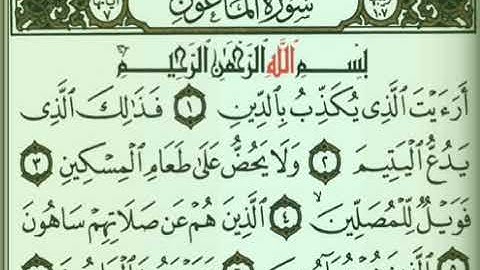 سورة الماعون
بِسْمِ اللَّهِ الرَّحْمَٰنِ الرَّحِيمِ
أَرَءَيْتَ ٱلَّذِى يُكَذِّبُ بِٱلدِّينِ ١ فَذَٰلِكَ ٱلَّذِى
يَدُعُّ ٱلْيَتِيمَ ٢ وَلَا يَحُضُّ عَلَىٰ طَعَامِ ٱلْمِسْكِينِ ٣
فَوَيْلٌ لِّلْمُصَلِّينَ ٤ ٱلَّذِينَ هُمْ عَن صَلَاتِهِمْ سَاهُونَ